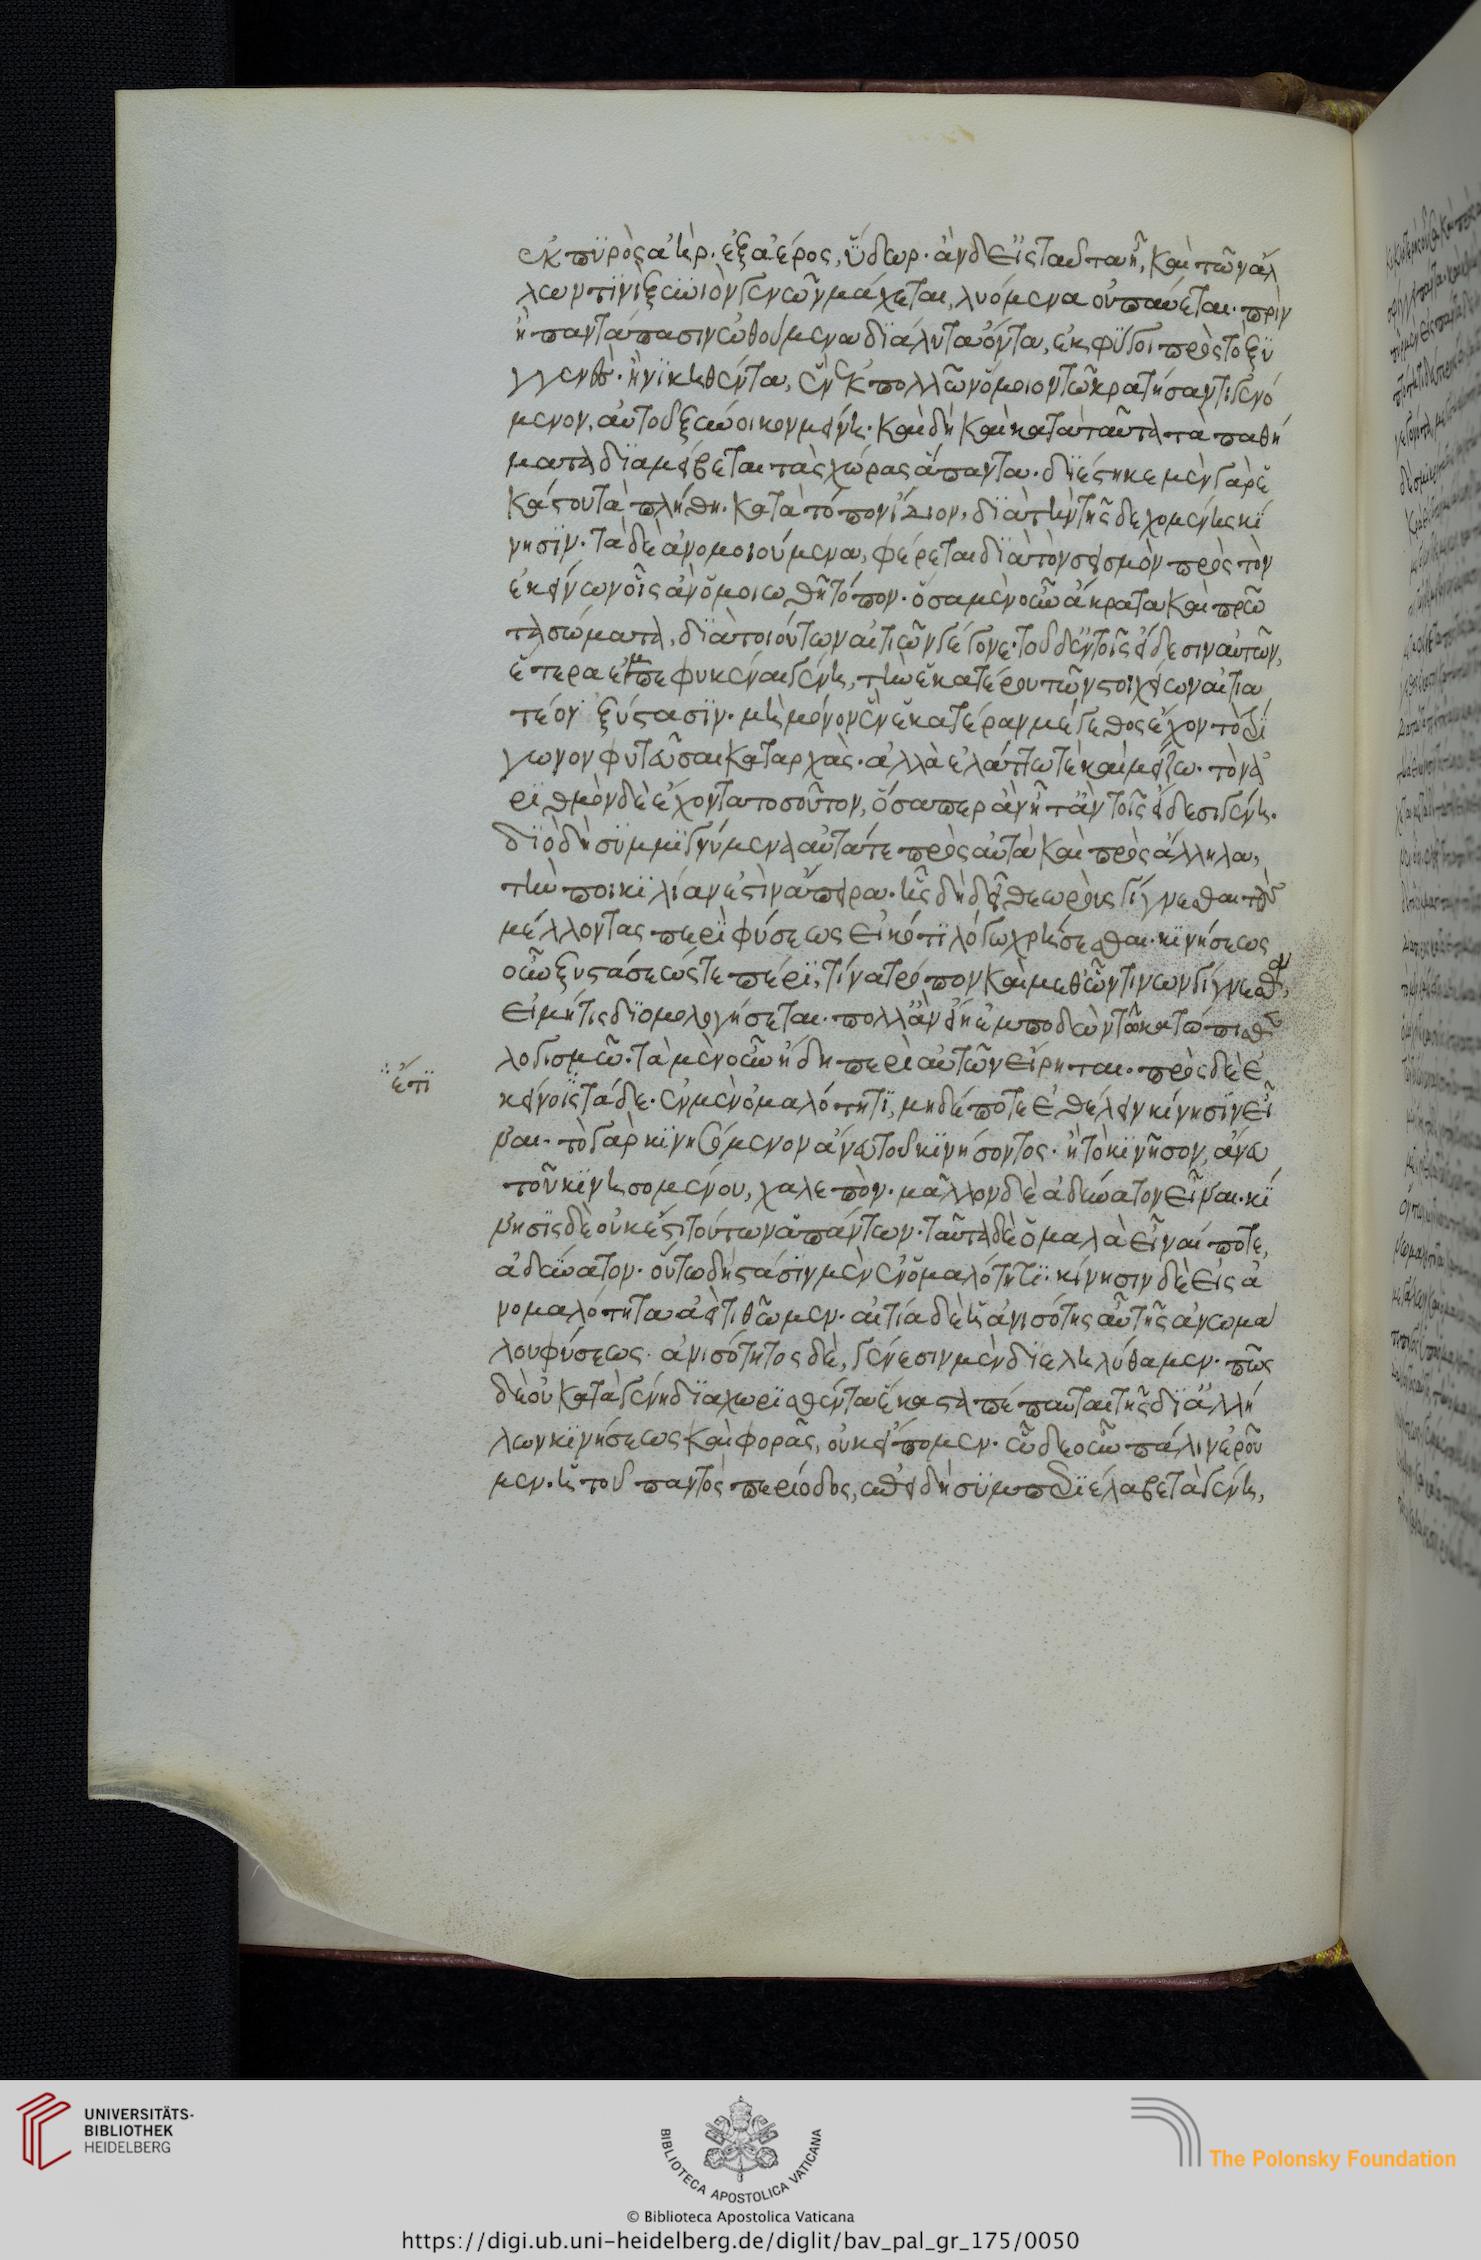 ἐκ πϋρὸς ἀὴρ· ἐξ ἀέρος, ὕδωρ· ἂν δ εἰς ταυτα ἴῃ, καὶ τῶν ἄλ
λων τϊνὶ ξυνιὸν γενῶν μάχεται, λυόμενα οὐ παύεται· πρὶν
ἢ παντάπασιν ὠθούμενα δϊάλυτα ὄντα, ἐκφϋγοι πρὸς τὸ ξϋ
γγενές· ἢ νϊκηθέντα, ἓν ἐκ πολλῶν ὅμοιον τῶ κρατήσαντι γενό
μενον, αὐτοῦ ξυνοικον μείνη· καὶ δὴ καὶ κατὰ ταῦτα τὰ παθή
ματα δϊαμείβεται τὰς χώρας ἅπαντα· δϊέστηκε μὲν γὰρ ἑ
κάστου τὰ πλήθη· κατὰ τόπον ἴδιον, δϊὰ τὴν τῆς δεχομένης κί
νησϊν· τὰ δὲ ἀνομοιούμενα, φέρεται δϊὰ τὸν σεισμὸν πρὸς τὸν
ἐκείνων οἷς ἂν ὁμοιωθῆ τόπον· ὅσα μὲν οὖν ἄκρατα καὶ πρῶ
τα σώματα, δϊὰ τοιούτων αἰτιῶν γέγονε· τοῦ δ ἐν τοῖς εἴδεσιν αὐτῶν,
ἕτερα ἐμπεφυκέναι γένη, τὴν ἑκατέρου τῶν στοιχείων αἰτια
τέον ξύστασϊν· μὴ μόνον ἓν ἑκατέραν μέγεθος ἔχον τὸ τρί
γωνον φυτεῦσαι καταρχὰς· ἀλλὰ ἐλάττω τὲ καὶ μείζω· τὸν ἀ
ρϊθμὸν δὲ ἔχοντα τοσοῦτον, ὅσαπερ ἂν ἦ τἂν τοῖς εἴδεσι γένη·
δϊὸ δὴ συμμϊγνύμενα αὐτά τε πρὸς αὑτὰ καὶ πρὸς ἄλληλα,
τὴν ποικϊλίαν ἐστὶν ἄπειρα· ἧς δὴ δεῖ θεωροὺς γίγνεσθαι τοὺς
μέλλοντας περὶ φύσεως εἰκότϊ λόγω χρήσεσθαι· κϊνήσεως
οὖν ξυστάσεώς τε πέρϊ, τίνα τρόπον καὶ μεθ ὧντινων γίγνεσθον,
εἰ μή τις δϊομολογήσεται· πολλ ἂν εἴη ἐμποδὼν τῶ κατόπισθεν
λογισμῶ· τὰ μὲν οὖν ἤδη περὶ αὐτῶν εἴρηται· πρὸς δὲ ἐ
ἔτϊ
κείνοις τάδε· ἐν μὲν ὁμαλότητϊ, μηδέποτε ἐθέλειν κίνησϊν εἶ
ναι· τὸ γὰρ κϊνησόμενον ἄνευ τοῦ κϊνήσοντος· ἢ τὸ κϊνῆσον, ἄνευ
τοῦ κϊνησομένου, χαλεπὸν· μᾶλλον δὲ ἀδύνατον εἶναι· κί
νησϊς δὲ οὐκ ἔστι τούτων ἁπάντων· ταῦτα δὲ ὁμαλὰ εἶναί ποτε,
ἀδύνατον· οὕτω δὴ στάσϊν μὲν ἐν ὁμαλότητϊ· κίνησιν δὲ εἰς ἀ
νομαλότητα ἀεὶ τιθῶμεν· αἰτία δὲ ἡ ἀνισότης αὖ τῆς ἀνωμά
λου φύσεως· ἀνισότητος δὲ, γένεσιν μὲν δϊεληλύθαμεν· πῶς
δὲ οὐ κατὰ γένη δϊαχωρϊσθέντα ἕκαστα πέπαυται τῆς δϊ ἀλλή
λων κϊνήσεως καὶ φορᾶς, οὐκ εἴπομεν· ὧδε οὖν πάλιν ἐροῦ
μεν· ἡ τοῦ παντὸς περίοδος, ἐπειδὴ συμπεριέλαβε τὰ γένη,
UNIVERSITÄTS-
BIBLIOTHEK
HEIDELBERG
BIBLIOTECA APOSTOLICA VATICANA
The Polonsky Foundation
© Biblioteca Apostolica Vaticana
https://digi.ub.uni-heidelberg.de/diglit/bav_pal_gr_175/0050